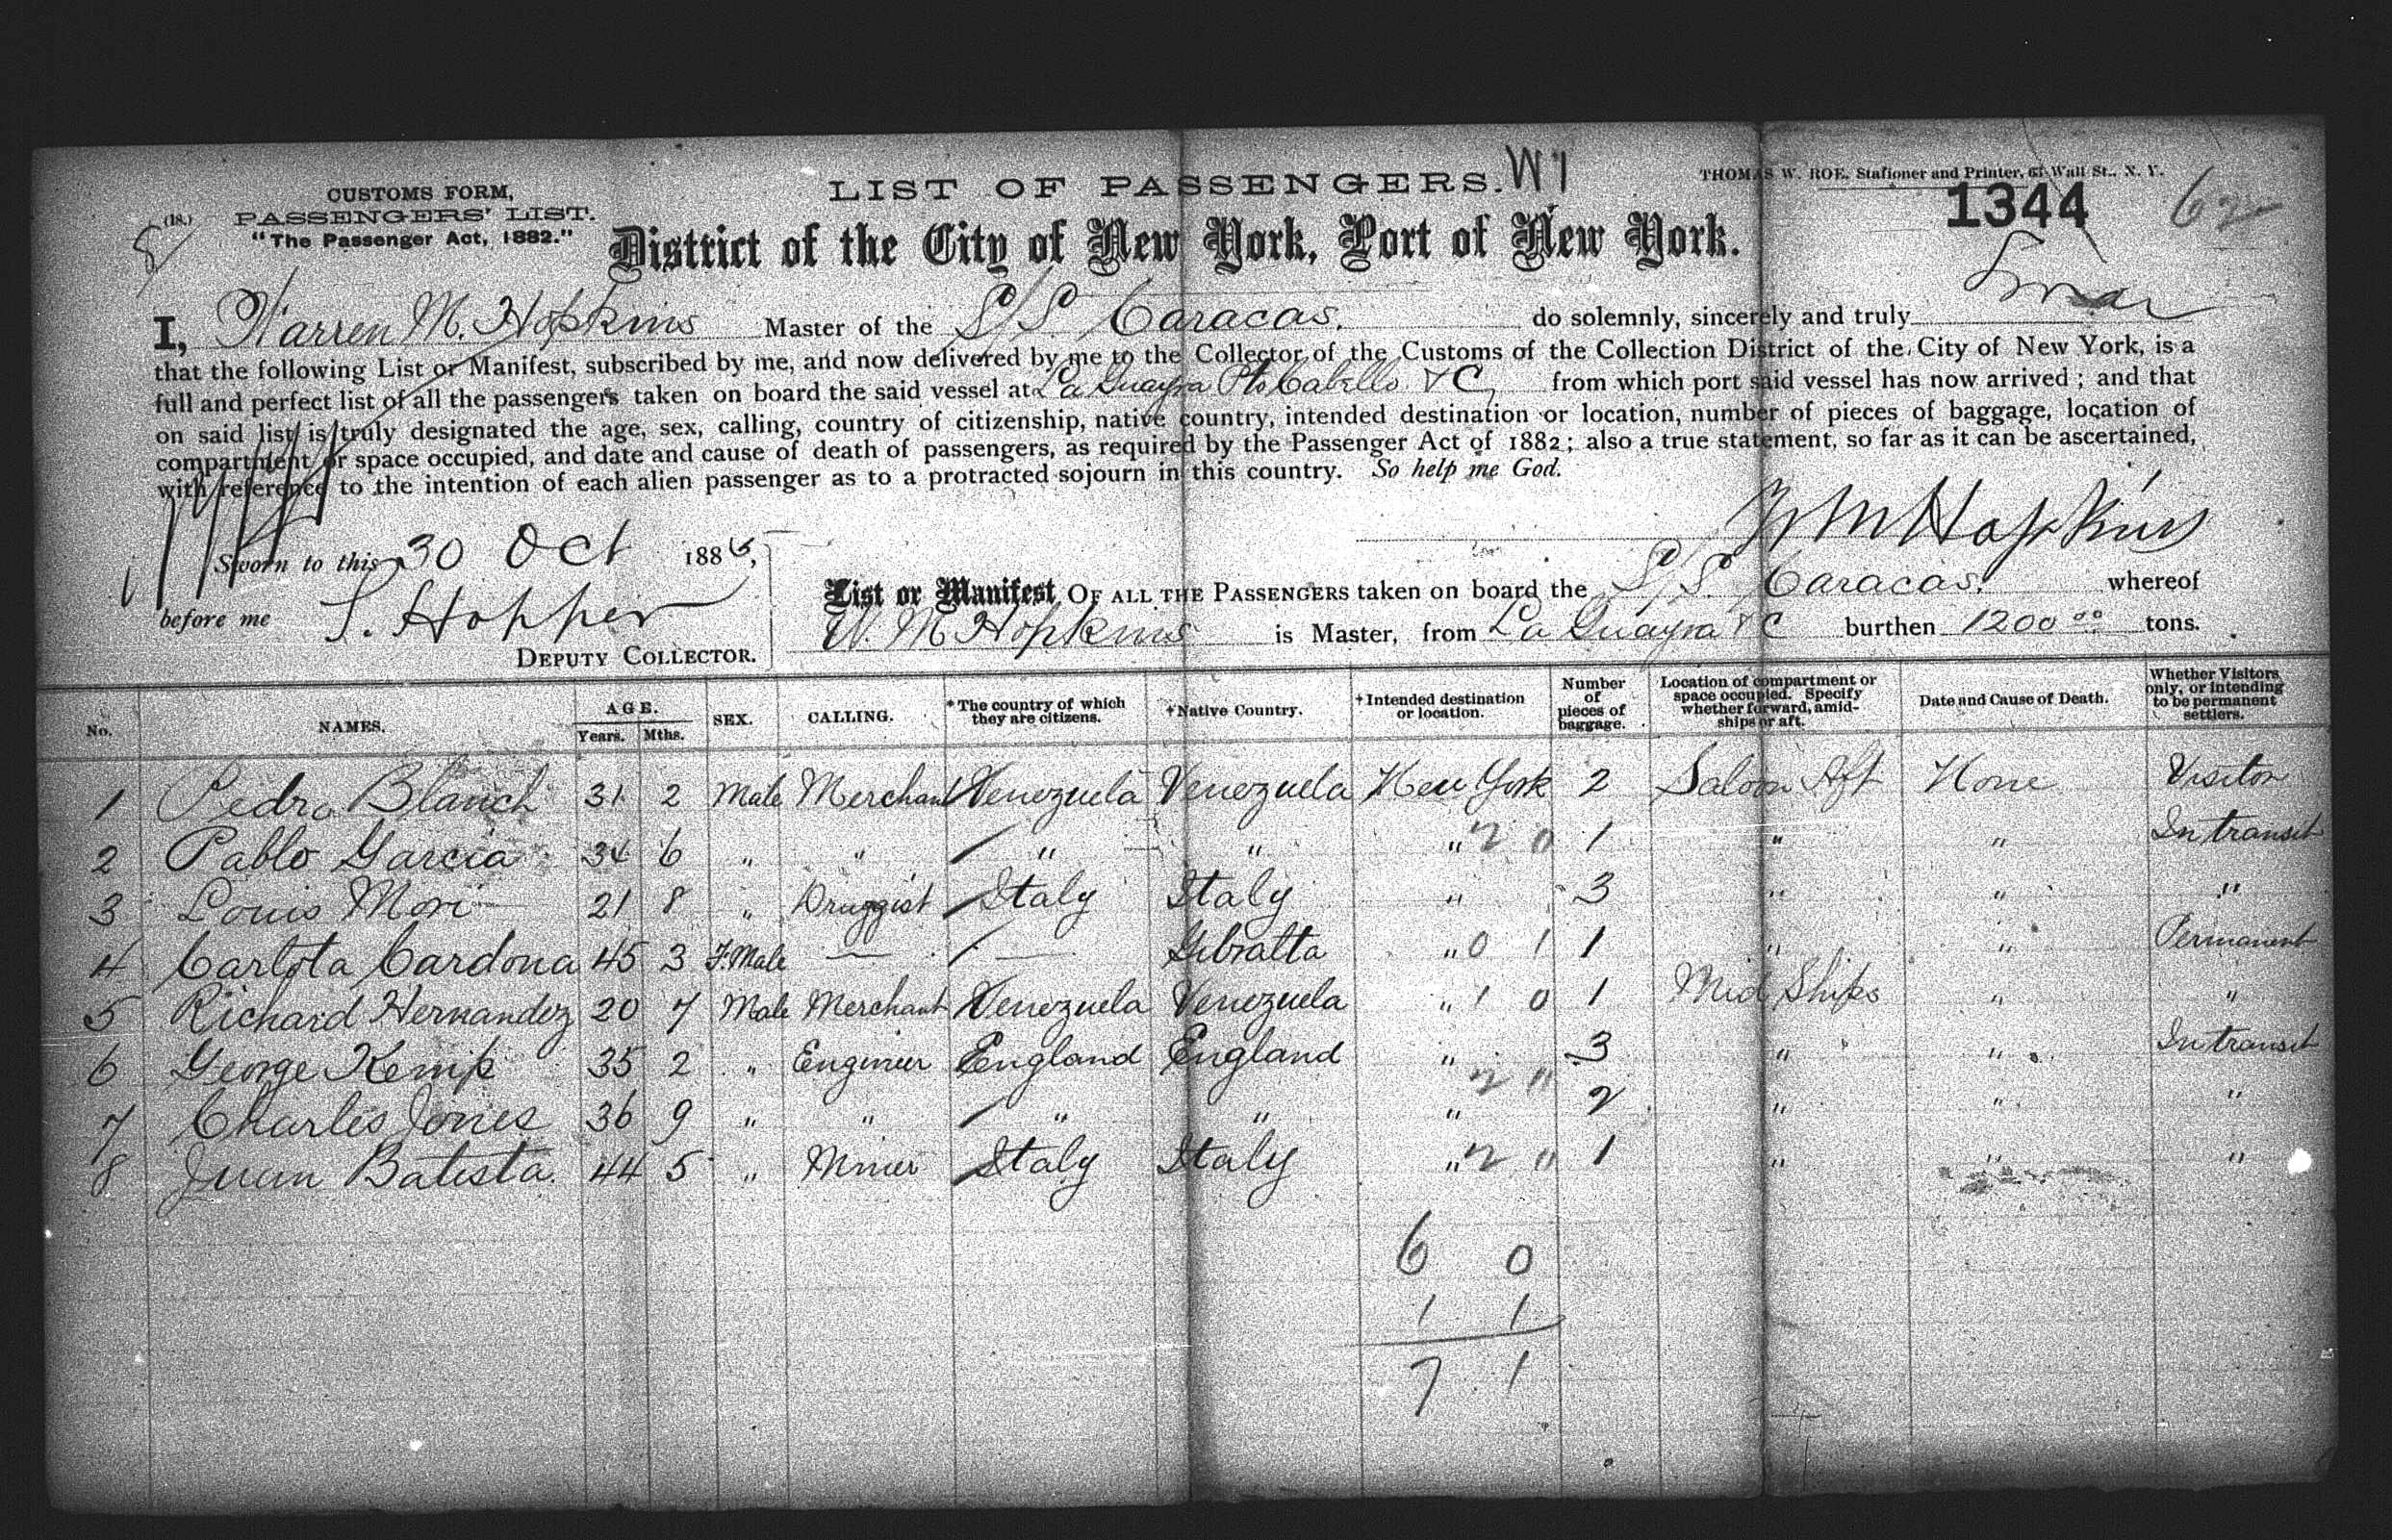 LIST OF PASSENGERS. W1
THOMAS W. ROE, Stationer and Printer, 65 Wall St., N. Y.
CUSTOMS FORM,
(18.) PASSENGERS' LIST.
"The Passenger Act, 1882."
1344 62
District of the City of New York, Port of New York.
I, Warren M. Hopkins Master of the S/S Caracas. do solemnly, sincerely and truly Swear
that the following List or Manifest, subscribed by me, and now delivered by me to the Collector of the Customs of the Collection District of the City of New York, is a
full and perfect list of all the passengers taken on board the said vessel at La Guayra Pto Cabello & C from which port said vessel has now arrived; and that
on said list is truly designated the age, sex, calling, country of citizenship, native country, intended destination or location, number of pieces of baggage, location of
compartment or space occupied, and date and cause of death of passengers, as required by the Passenger Act of 1882; also a true statement, so far as it can be ascertained,
with reference to the intention of each alien passenger as to a protracted sojourn in this country. So help me God.
W M Hopkins
Sworn to this 30 Oct 1886,
before me S. Hopper
DEPUTY COLLECTOR.
List or Manifest OF ALL THE PASSENGERS taken on board the S/S Caracas. whereof
W. M Hopkins is Master, from La Guayra & C burthen 1200 00 tons.
No. NAMES. AGE. Years. Mths. SEX. CALLING. *The country of which they are citizens. †Native Country. †Intended destination or location. Number of pieces of baggage. Location of compartment or space occupied. Specify whether forward, amidships or aft. Date and Cause of Death. Whether Visitors only, or intending to be permanent settlers.
1 Pedro Blanch 31 2 Male Merchant Venezuela Venezuela New York 2 Saloon Aft None Visitor
2 Pablo Garcia 34 6 " " " " " 2 0 1 " " In transit
3 Louis Mori 21 8 " Druggist Italy Italy " 3 " " "
4 Carlota Cardona 45 3 F.Male — — Gibralta " 0 1 1 " " Permanent
5 Richard Hernandez 20 7 Male Merchant Venezuela Venezuela " 1 0 1 Mid Ships " "
6 George Kemp 35 2 " Engineer England England " 3 " " In transit
7 Charles Jones 36 9 " " " " " 2 0 2 " " "
8 Juan Batista. 44 5 " Miner Italy Italy " 2 0 1 " " "
6 0
1 1
7 1